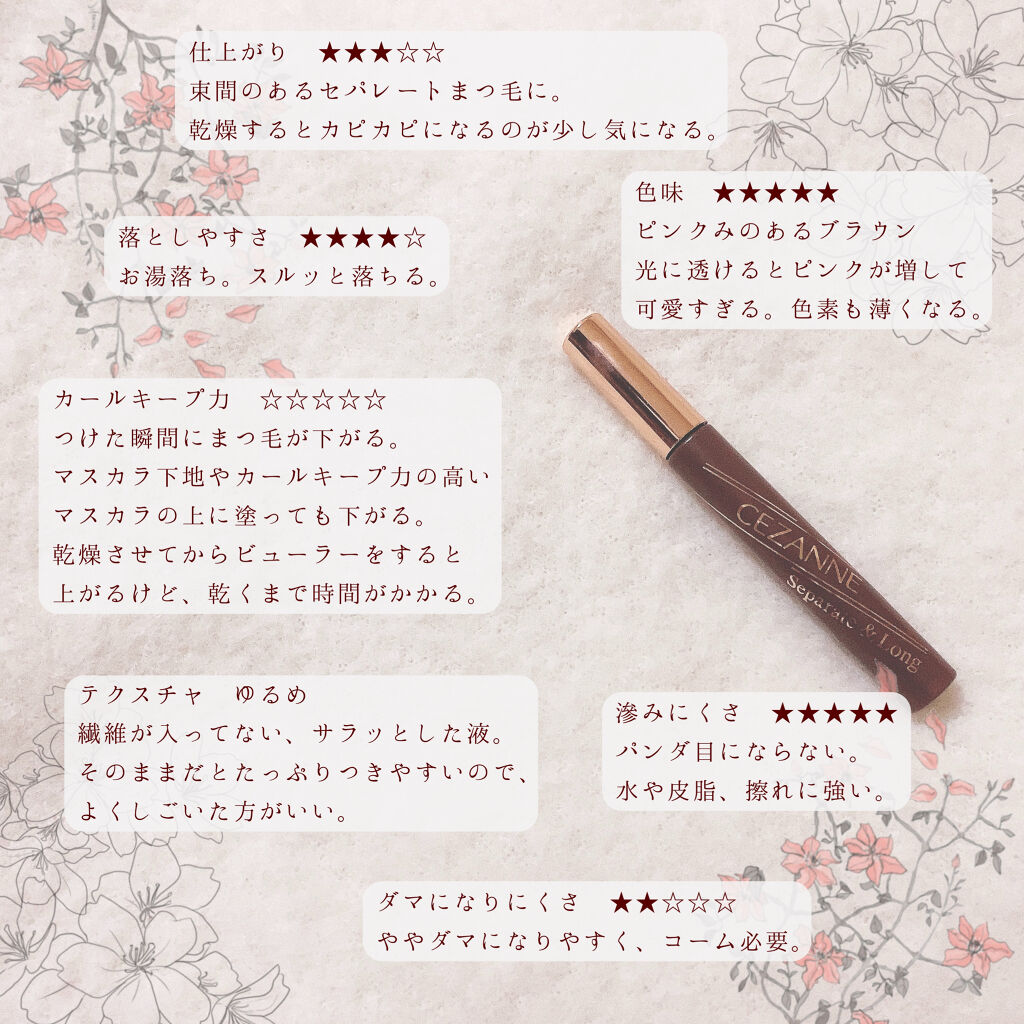 仕上がり　★★★☆☆
束間のあるセパレートまつ毛に。
乾燥するとカピカピになるのが少し気になる。
色味　★★★★★
ピンクみのあるブラウン
光に透けるとピンクが増して
可愛すぎる。色素も薄くなる。
落としやすさ　★★★★☆
お湯落ち。スルッと落ちる。
カールキープ力　☆☆☆☆☆
つけた瞬間にまつ毛が下がる。
マスカラ下地やカールキープ力の高い
マスカラの上に塗っても下がる。
乾燥させてからビューラーをすると
上がるけど、乾くまで時間がかかる。
CEZANNE
Separate & Long
テクスチャ　ゆるめ
繊維が入ってない、サラッとした液。
そのままだとたっぷりつきやすいので、
よくしごいた方がいい。
滲みにくさ　★★★★★
パンダ目にならない。
水や皮脂、擦れに強い。
ダマになりにくさ　★★☆☆☆
ややダマになりやすく、コーム必要。